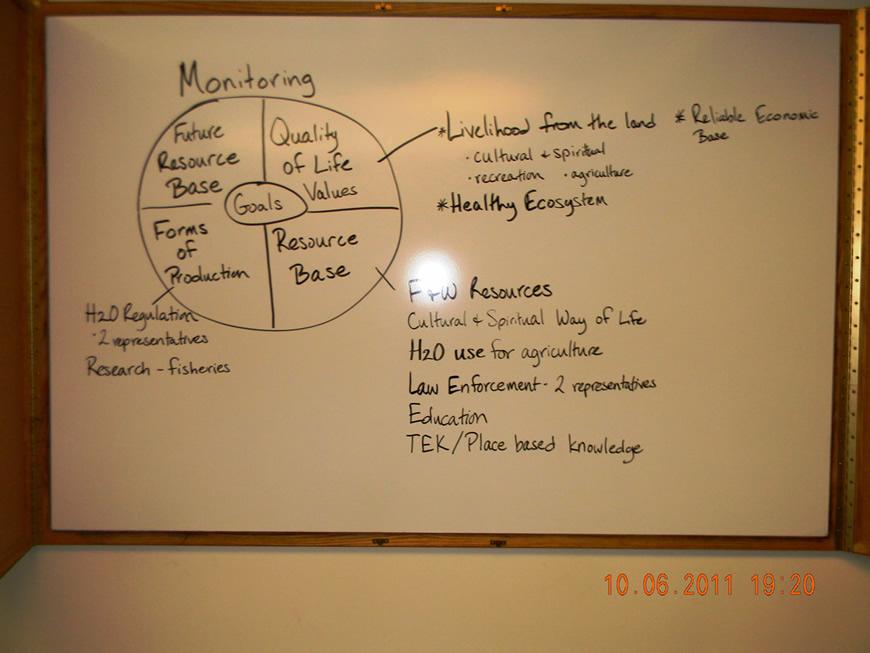 Monitoring
Future
Resource
Base
Quality
of Life
Values
Goals
Forms
of
Production
Resource
Base
*Livelihood from the land
· cultural & spiritual
· recreation · agriculture
*Healthy Ecosystem
* Reliable Economic
Base
H2O Regulation
· 2 representatives
Research - fisheries
F&W Resources
Cultural & Spiritual Way of Life
H2O use for agriculture
Law Enforcement - 2 representatives
Education
TEK/Place based knowledge
10.06.2011 19:20